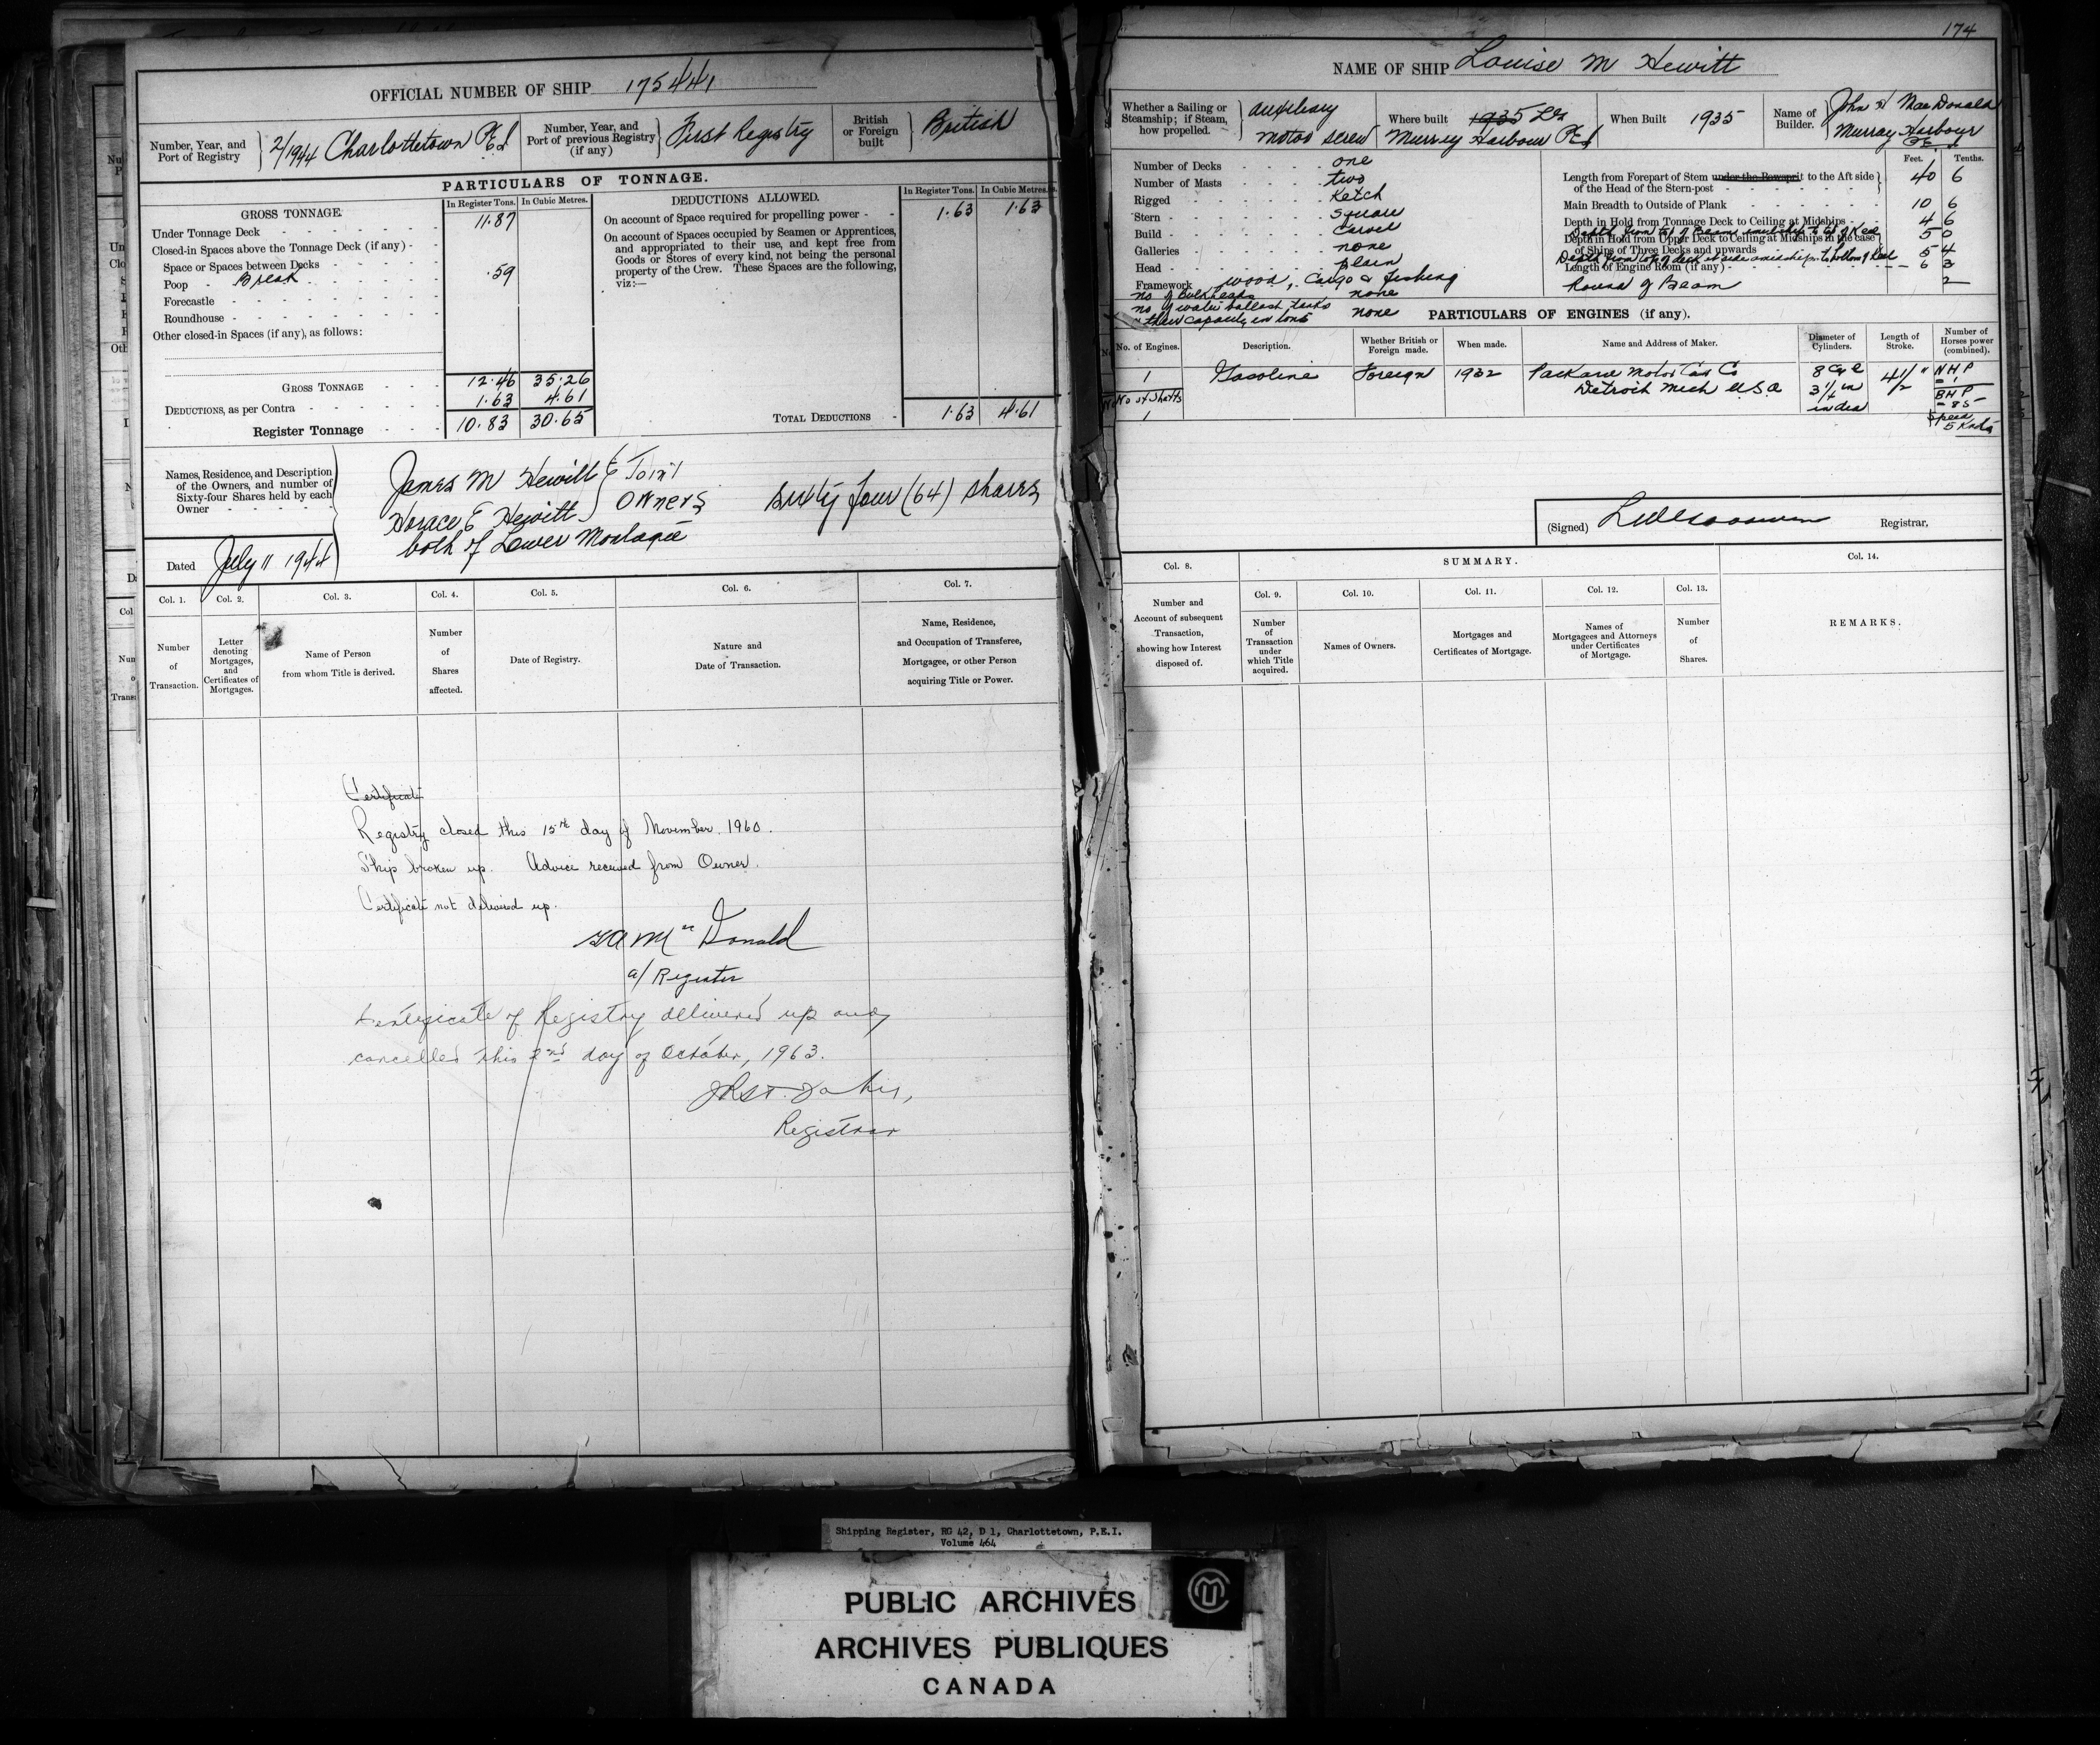 OFFICIAL NUMBER OF SHIP 175441
Number, Year, and
Port of Registry
2/1944 Charlottetown P.E.I
Number, Year, and
Port of previous Registry
(if any)
First Registry
British
or Foreign
built
British
PARTICULARS OF TONNAGE.
GROSS TONNAGE.
In Register Tons.
In Cubic Metres.
Under Tonnage Deck 11.87
Closed-in Spaces above the Tonnage Deck (if any)
Space or Spaces between Decks
Poop Break .59
Forecastle
Roundhouse
Other closed-in Spaces (if any), as follows:
GROSS TONNAGE 12.46 35.26
DEDUCTIONS, as per Contra 1.63 4.61
Register Tonnage 10.83 30.65
DEDUCTIONS ALLOWED.
In Register Tons. In Cubic Metres.
On account of Space required for propelling power 1.63 1.63
On account of Spaces occupied by Seamen or Apprentices,
and appropriated to their use, and kept free from
Goods or Stores of every kind, not being the personal
property of the Crew. These Spaces are the following,
viz:—
TOTAL DEDUCTIONS 1.63 4.61
Names, Residence, and Description
of the Owners, and number of
Sixty-four Shares held by each
Owner
James M Hewitt & Joint
Horace E Hewitt Owners Sixty four (64) shares
both of Lower Montague
Dated July 11 1944
Col. 1. Col. 2. Col. 3. Col. 4. Col. 5. Col. 6. Col. 7.
Number
of
Transaction.
Letter
denoting
Mortgages,
and
Certificates of
Mortgages.
Name of Person
from whom Title is derived.
Number
of
Shares
affected.
Date of Registry.
Nature and
Date of Transaction.
Name, Residence,
and Occupation of Transferee,
Mortgagee, or other Person
acquiring Title or Power.
Certificate
Registry closed this 15th day of November. 1960.
Ship broken up. Advice received from Owner.
Certificate not delivered up.
McDonald
a/ Register
Certificate of Registry delivered up and
cancelled this 2nd day of October, 1963.
Registrar
174
NAME OF SHIP Louise M Hewitt
Whether a Sailing or
Steamship; if Steam,
how propelled.
Auxiliary
Motor Screw
Where built 1935
Murray Harbour PEI
When Built 1935
Name of
Builder.
John MacDonald
Murray Harbour
PEI
Number of Decks one
Number of Masts two
Rigged Ketch
Stern square
Build carvel
Galleries none
Head plain
Framework wood, Cargo & Fishing
no of Bulkheads none
no of water ballast tanks
& their capacity in tons none
Feet. Tenths.
Length from Forepart of Stem under the Bowsprit to the Aft side
of the Head of the Stern-post 40 6
Main Breadth to Outside of Plank 10 6
Depth in Hold from Tonnage Deck to Ceiling at Midships 4 6
Depth from top of Beam amidships to top of Keel 5 0
Depth in Hold from Upper Deck to Ceiling at Midships in the case
of Ships of Three Decks and upwards 5 4
Depth from top of deck at side amidships to bottom of keel
Length of Engine Room (if any) 6 3
Round of Beam 2
PARTICULARS OF ENGINES (if any).
No. of Engines.
Description.
Whether British or
Foreign made.
When made.
Name and Address of Maker.
Diameter of
Cylinders.
Length of
Stroke.
Number of
Horses power
(combined).
1 Gasoline Foreign 1932 Packard Motor Car Co 8 Cyl 4 1/2" NHP
Detroit Mich USA
No of Shafts
1
3 1/4 in
in dia
BHP
- 85 -
Speed
5 Knots
(Signed) Registrar,
Col. 8.
SUMMARY.
Col. 14.
Col. 9. Col. 10. Col. 11. Col. 12. Col. 13.
Number and
Account of subsequent
Transaction,
showing how Interest
disposed of.
Number
of
Transaction
under
which Title
acquired.
Names of Owners.
Mortgages and
Certificates of Mortgage.
Names of
Mortgagees and Attorneys
under Certificates
of Mortgage.
Number
of
Shares.
REMARKS.
Shipping Register, RG 42, D 1, Charlottetown, P.E.I.
Volume 464
PUBLIC ARCHIVES
ARCHIVES PUBLIQUES
CANADA